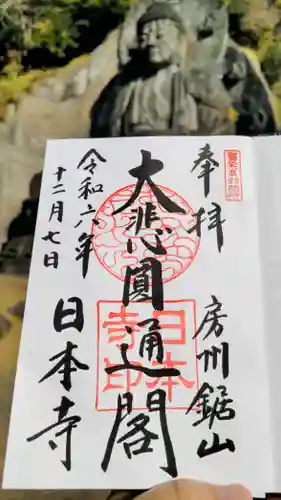 奉拝
房州鋸山
大悲圓通閣
令和六年
十二月七日
日本寺
日本
寺印